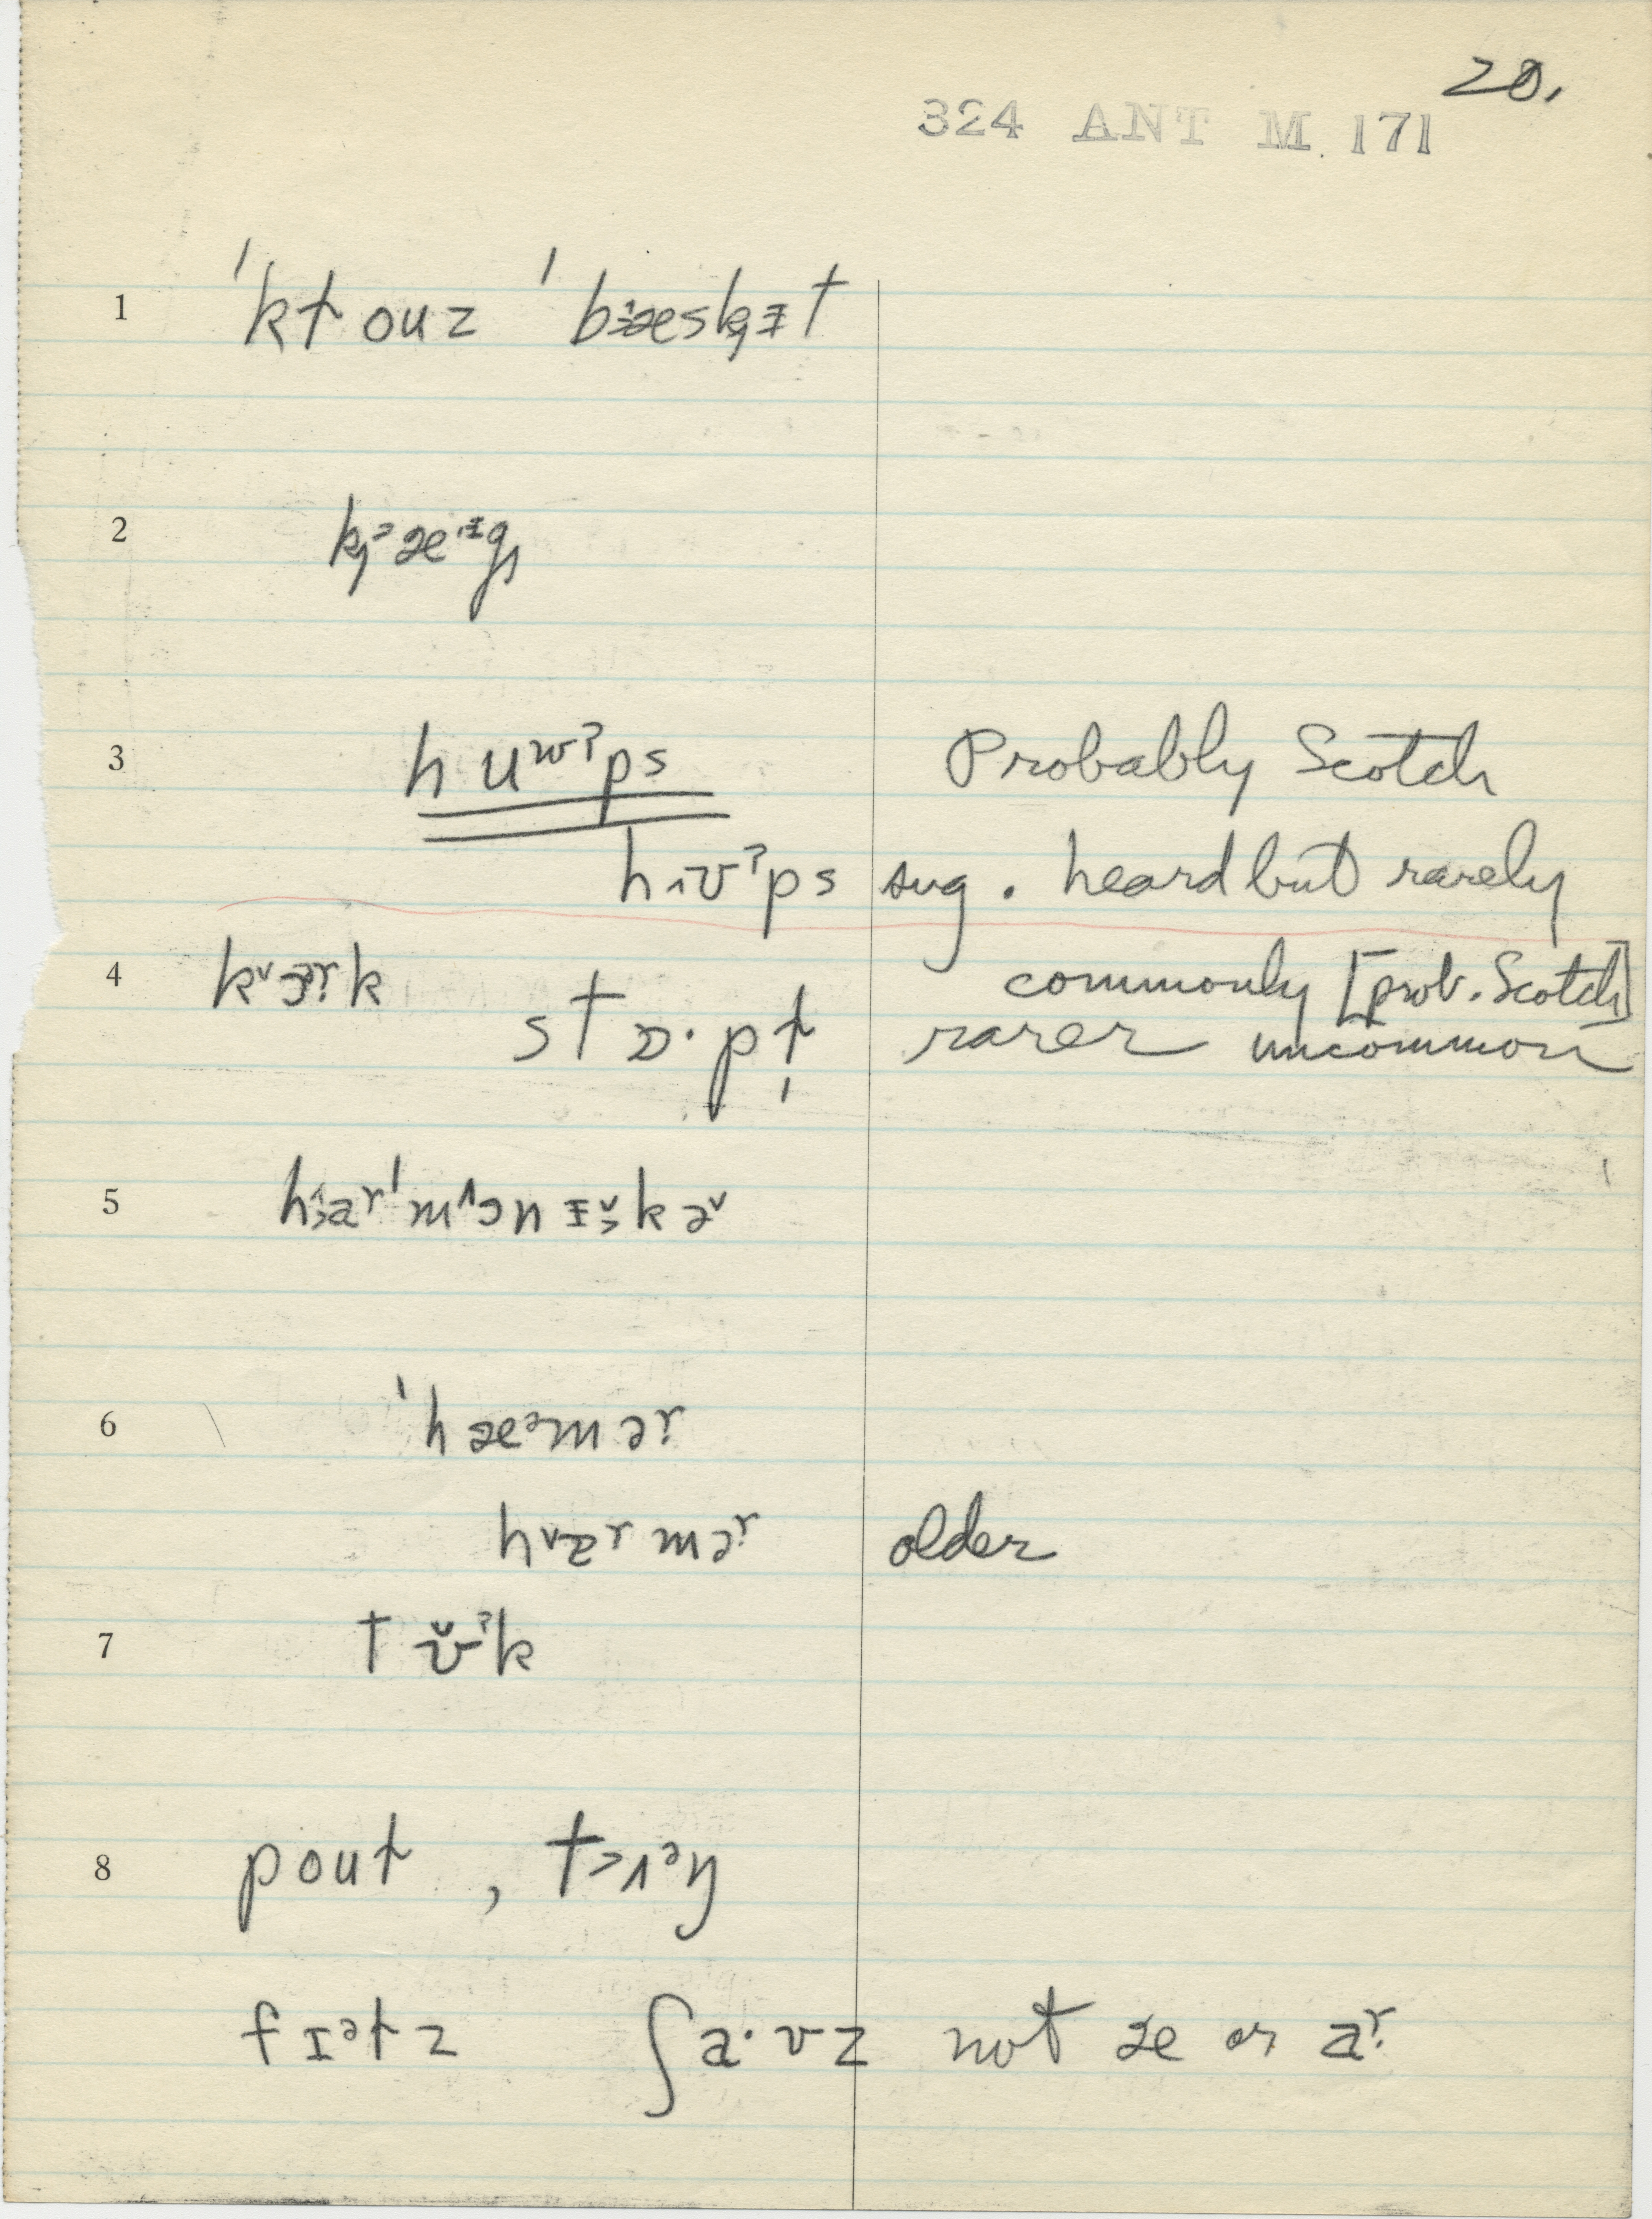 20.
324 ANT M. 171
1 ˈkt̬ouz ˈbæskɪt
2 kæᵊg
3 huʷˀps Probably Scotch
hʊˀps sug. heard but rarely
4 kɔrk commonly [prob. Scotch]
stɒ·pt̬ rarer uncommon
5 harˈmɔnɪkə
6 ˈhæᵊmər
hɐrmər older
7 tʊˀk
8 pout̬ , tʌᵊŋ
fɪᵊt̬z ʃa·vz not æ or aʳ